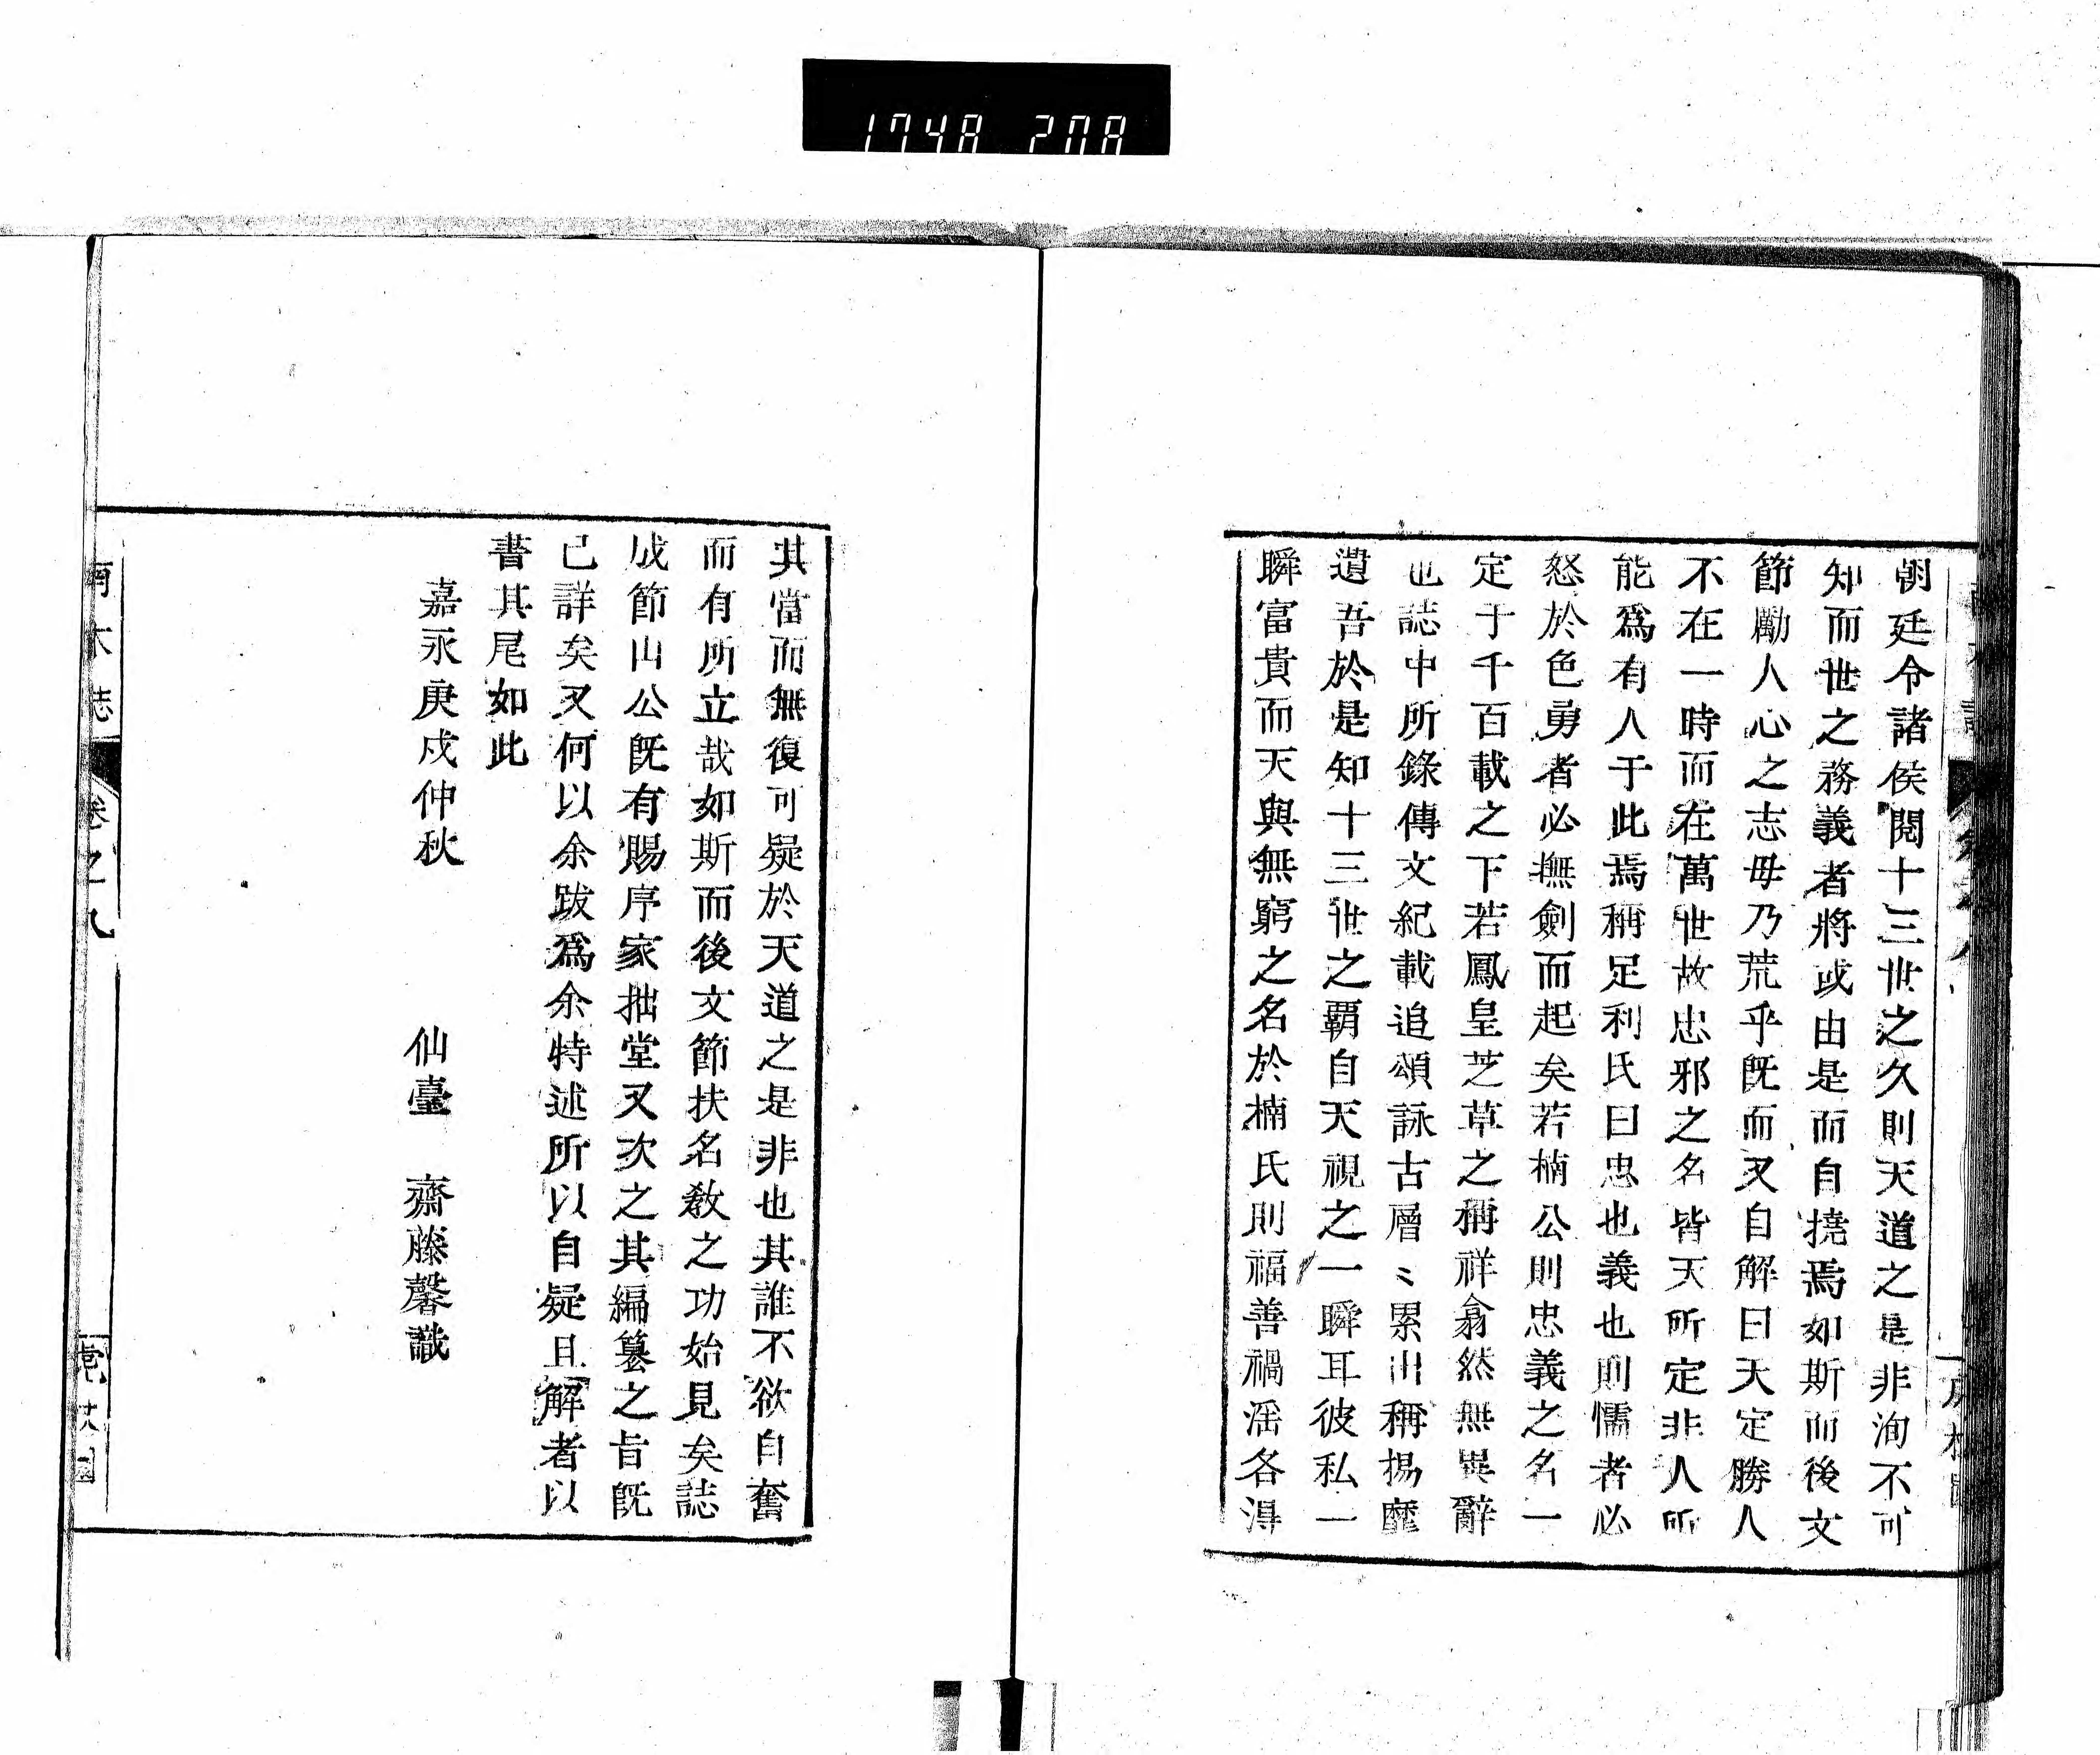 1748 208
朝廷令諸侯閱十三世之久則天道之是非洵不可
知而世之務義者將或由是而自撓焉如斯而後文
節勵人心之志毋乃荒乎旣而又自解曰天定勝人
不在一時而在萬世故忠邪之名皆天所定非人所
能爲有人于此焉稱足利氏曰忠也義也則懦者必
怒於色勇者必撫劍而起矣若楠公則忠義之名一
定于千百載之下若鳳皇芝草之稱祥翕然無異辭
也誌中所錄傳文紀載追頌詠古層〻累出稱揚靡
遺吾於是知十三世之覇自天視之一瞬耳彼私一
瞬富貴而天與無窮之名於楠氏則福善禍淫各得
其當而無復可疑於天道之是非也其誰不欲自奮
而有所立哉如斯而後文節扶名敎之功始見矣誌
成節山公旣有賜序家拙堂又次之其編纂之旨旣
已詳矣又何以余跋爲余特述所以自疑且解者以
書其尾如此
嘉永庚戍仲秋
仙臺 齋藤馨識
南木誌 卷之九